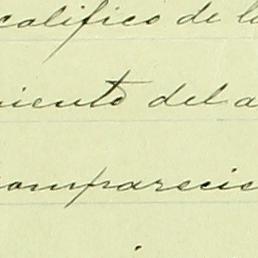 calífico de l
miento del a
comparecie